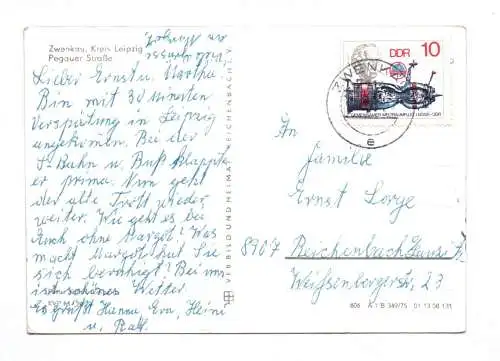 Zwenkau, Kreis Leipzig
Pegauer Straße
Lieber Ernst u. Martha
Bin mit 30 Minuten
Verspätung in Leipzig
angekommen. Bei der
S-Bahn u. Buß klappte
er prima. Nun geht
der alte Trott wieder
weiter. Wie geht es bei
Euch ohne Margot! Was
macht Margot hat Sie
sich beruhigt! Bei uns
ist schönes Wetter.
Es grüßt Hanna, Eva, Heini
u. Ralf.
VERB BILD UND HEIMAT REICHENBACH I. V.
DDR 10
GEMEINSAMER WELTRAUMFLUG UdSSR-DDR
ZWENKAU
a
An
Familie
Ernst Lorge
8907 Reichenbach
Weißenbergerstr. 23
806 A 1/B 349/75 01 13 08 131